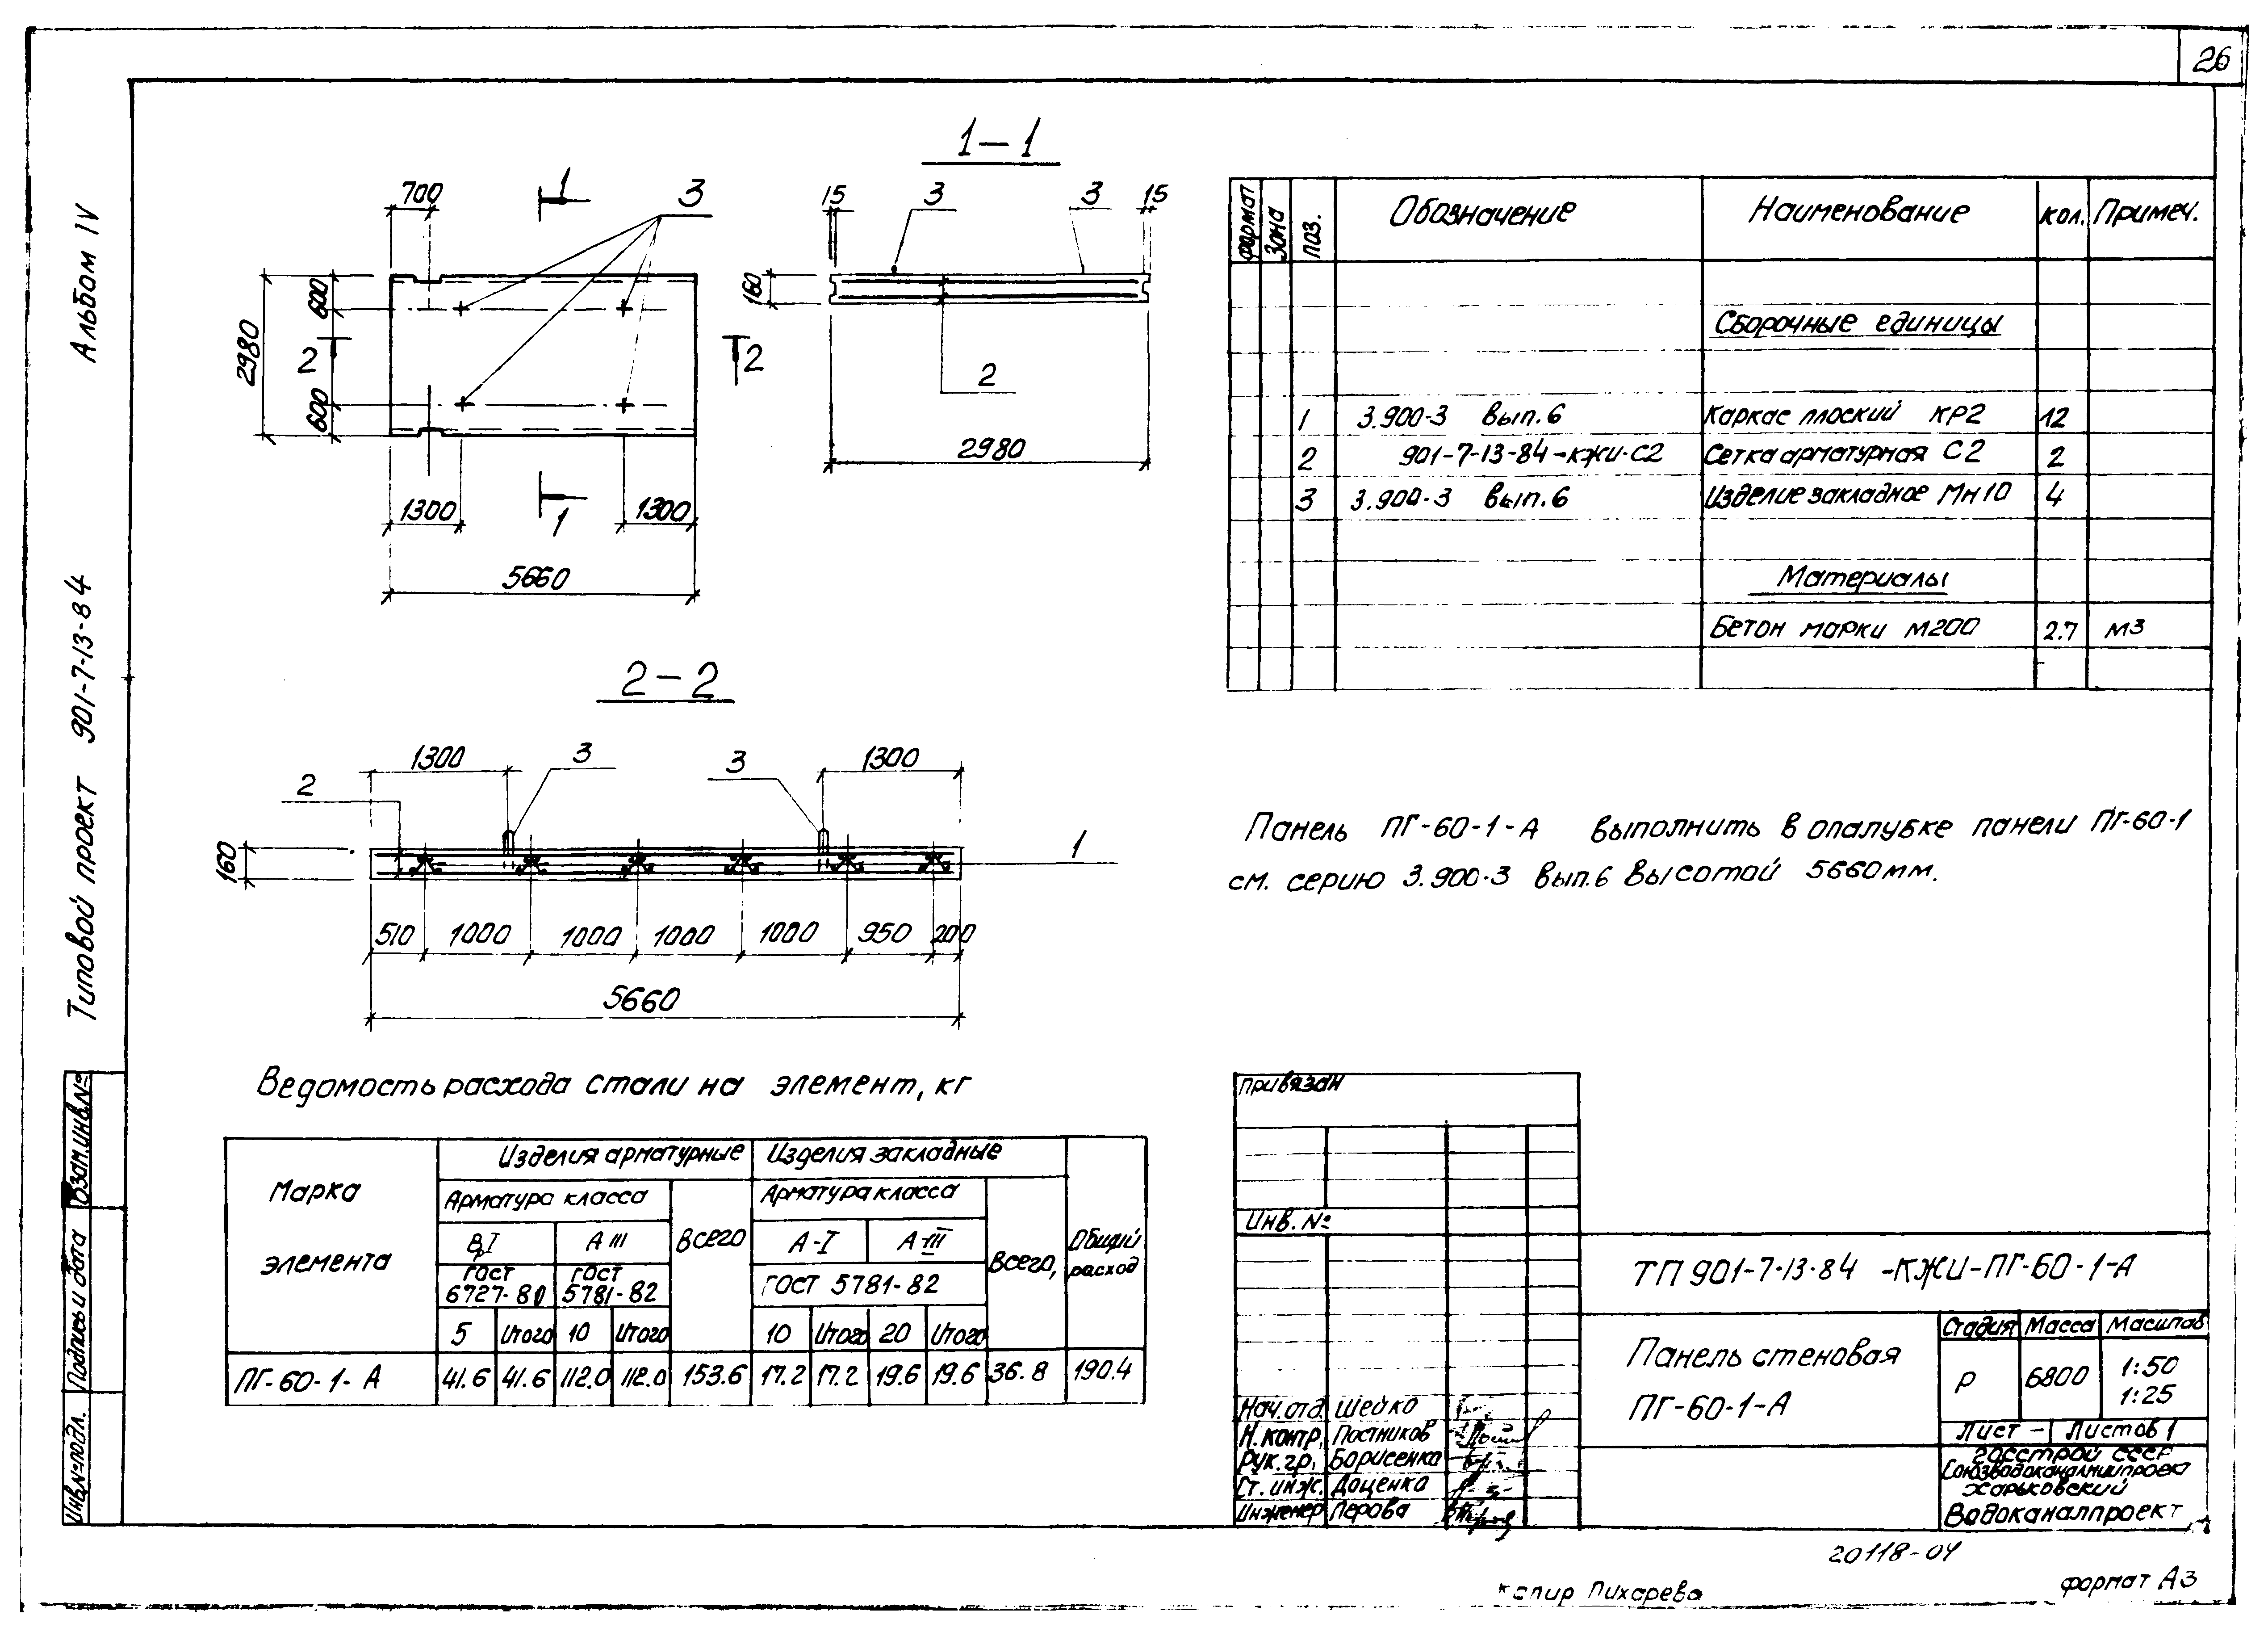 26
Альбом IV
Типовой проект 901-7-13-84
Взам.инв.№
Подпись и дата
Инв.№подл.
1-1
700
1
3
2980
600
2
600
2
1300
1
1300
5660
15
3
3
15
160
2
2980
2-2
1300
3
3
1300
2
160
1
510
1000
1000
1000
1000
950
200
5660
формат
Зона
поз.
Обозначение
Наименование
кол.
Примеч.
Сборочные единицы
1 3.900-3 вып.6 Каркас плоский КР2 12
2 901-7-13-84-КЖИ-С2 Сетка арматурная С2 2
3 3.900-3 вып.6 Изделие закладное МН10 4
Материалы
Бетон марки М200 2.7 м3
Панель ПГ-60-1-А выполнить в опалубке панели ПГ-60-1
см. серию 3.900-3 вып.6 высотой 5660мм.
Ведомость расхода стали на элемент, кг
Марка
элемента
Изделия арматурные
Изделия закладные
Общий
расход
Арматура класса
Всего
Арматура класса
Всего,
ВрI
А III
А-I
А-III
ГОСТ
6727-80
ГОСТ
5781-82
ГОСТ 5781-82
5 Итого 10 Итого 10 Итого 20 Итого
ПГ-60-1-А 41.6 41.6 112.0 112.0 153.6 17.2 17.2 19.6 19.6 36.8 190.4
привязан
Инв. №
ТП 901-7-13-84 -КЖИ-ПГ-60-1-А
Панель стеновая
ПГ-60-1-А
Стадия Масса Масштаб
Р 6800 1:50
1:25
Лист - Листов 1
Госстрой СССР
Союзводоканалниипроект
Харьковский
Водоканалпроект
Нач.отд. Шейко
Н.контр. Постников
Рук.гр. Борисенко
Ст.инж. Доценко
Инженер Перова
20118-04
копир Пихарева
формат А3